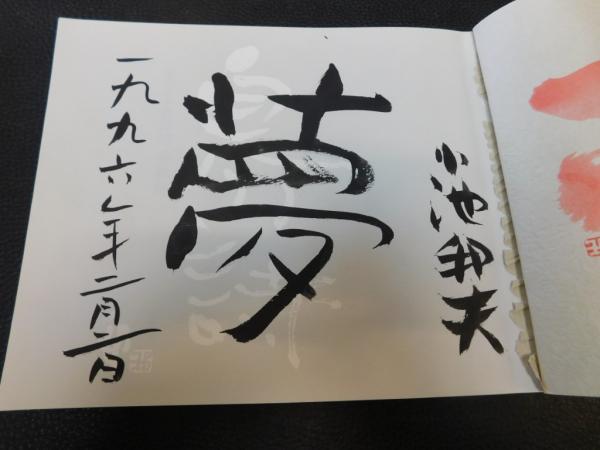 小池邦夫
夢
一九九六年二月二日